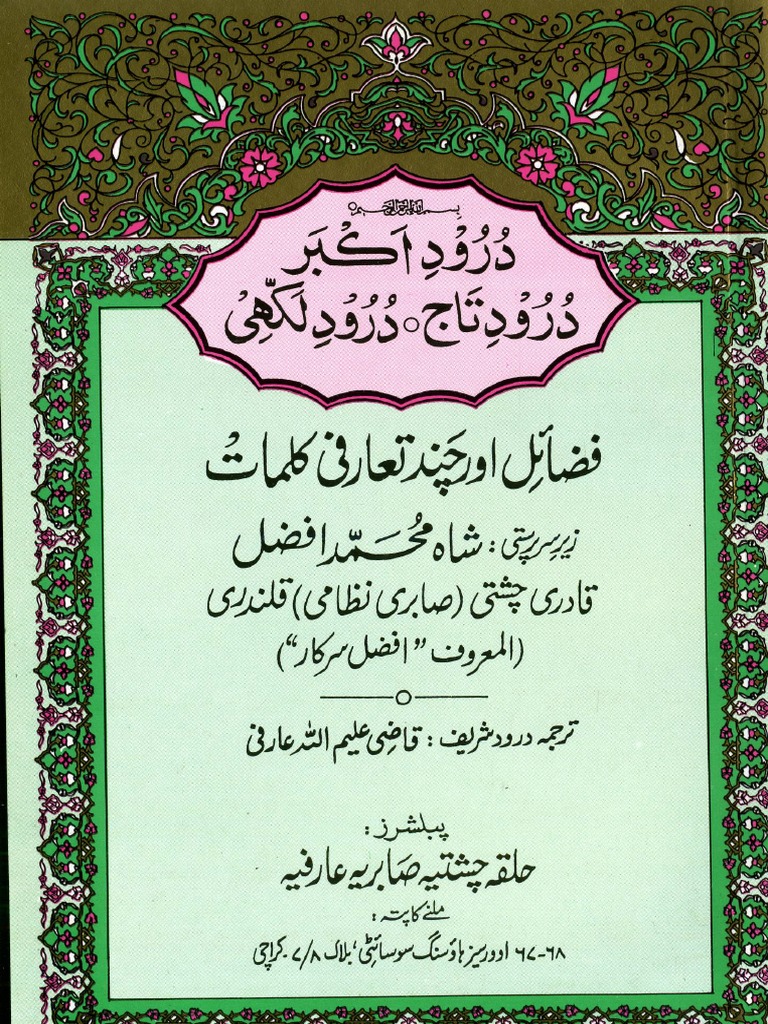 بسم اللہ الرحمن الرحیم
دُرُوْدِ اَکْبَر
دُرُوْدِ تَاج ○ دُرُوْدِ لَکھِّیْ
فضائِل اور چَند تعارفی کلمات
زیرِ سرپرستی : شاہ مُحَمَّد افضل
قادری چشتی (صابری نظامی) قلندری
(المعروف ”افضل سرکار“)
ترجمہ درود شریف : قاضِی علیم اللہ عارفی
پبلشرز :
حلقہ چشتیہ صَابریہ عارفیہ
ملنے کا پتہ :
۶۷-۶۸ اوورسیز ہاؤسنگ سوسائٹی، بلاک ۷/۸ - کراچی